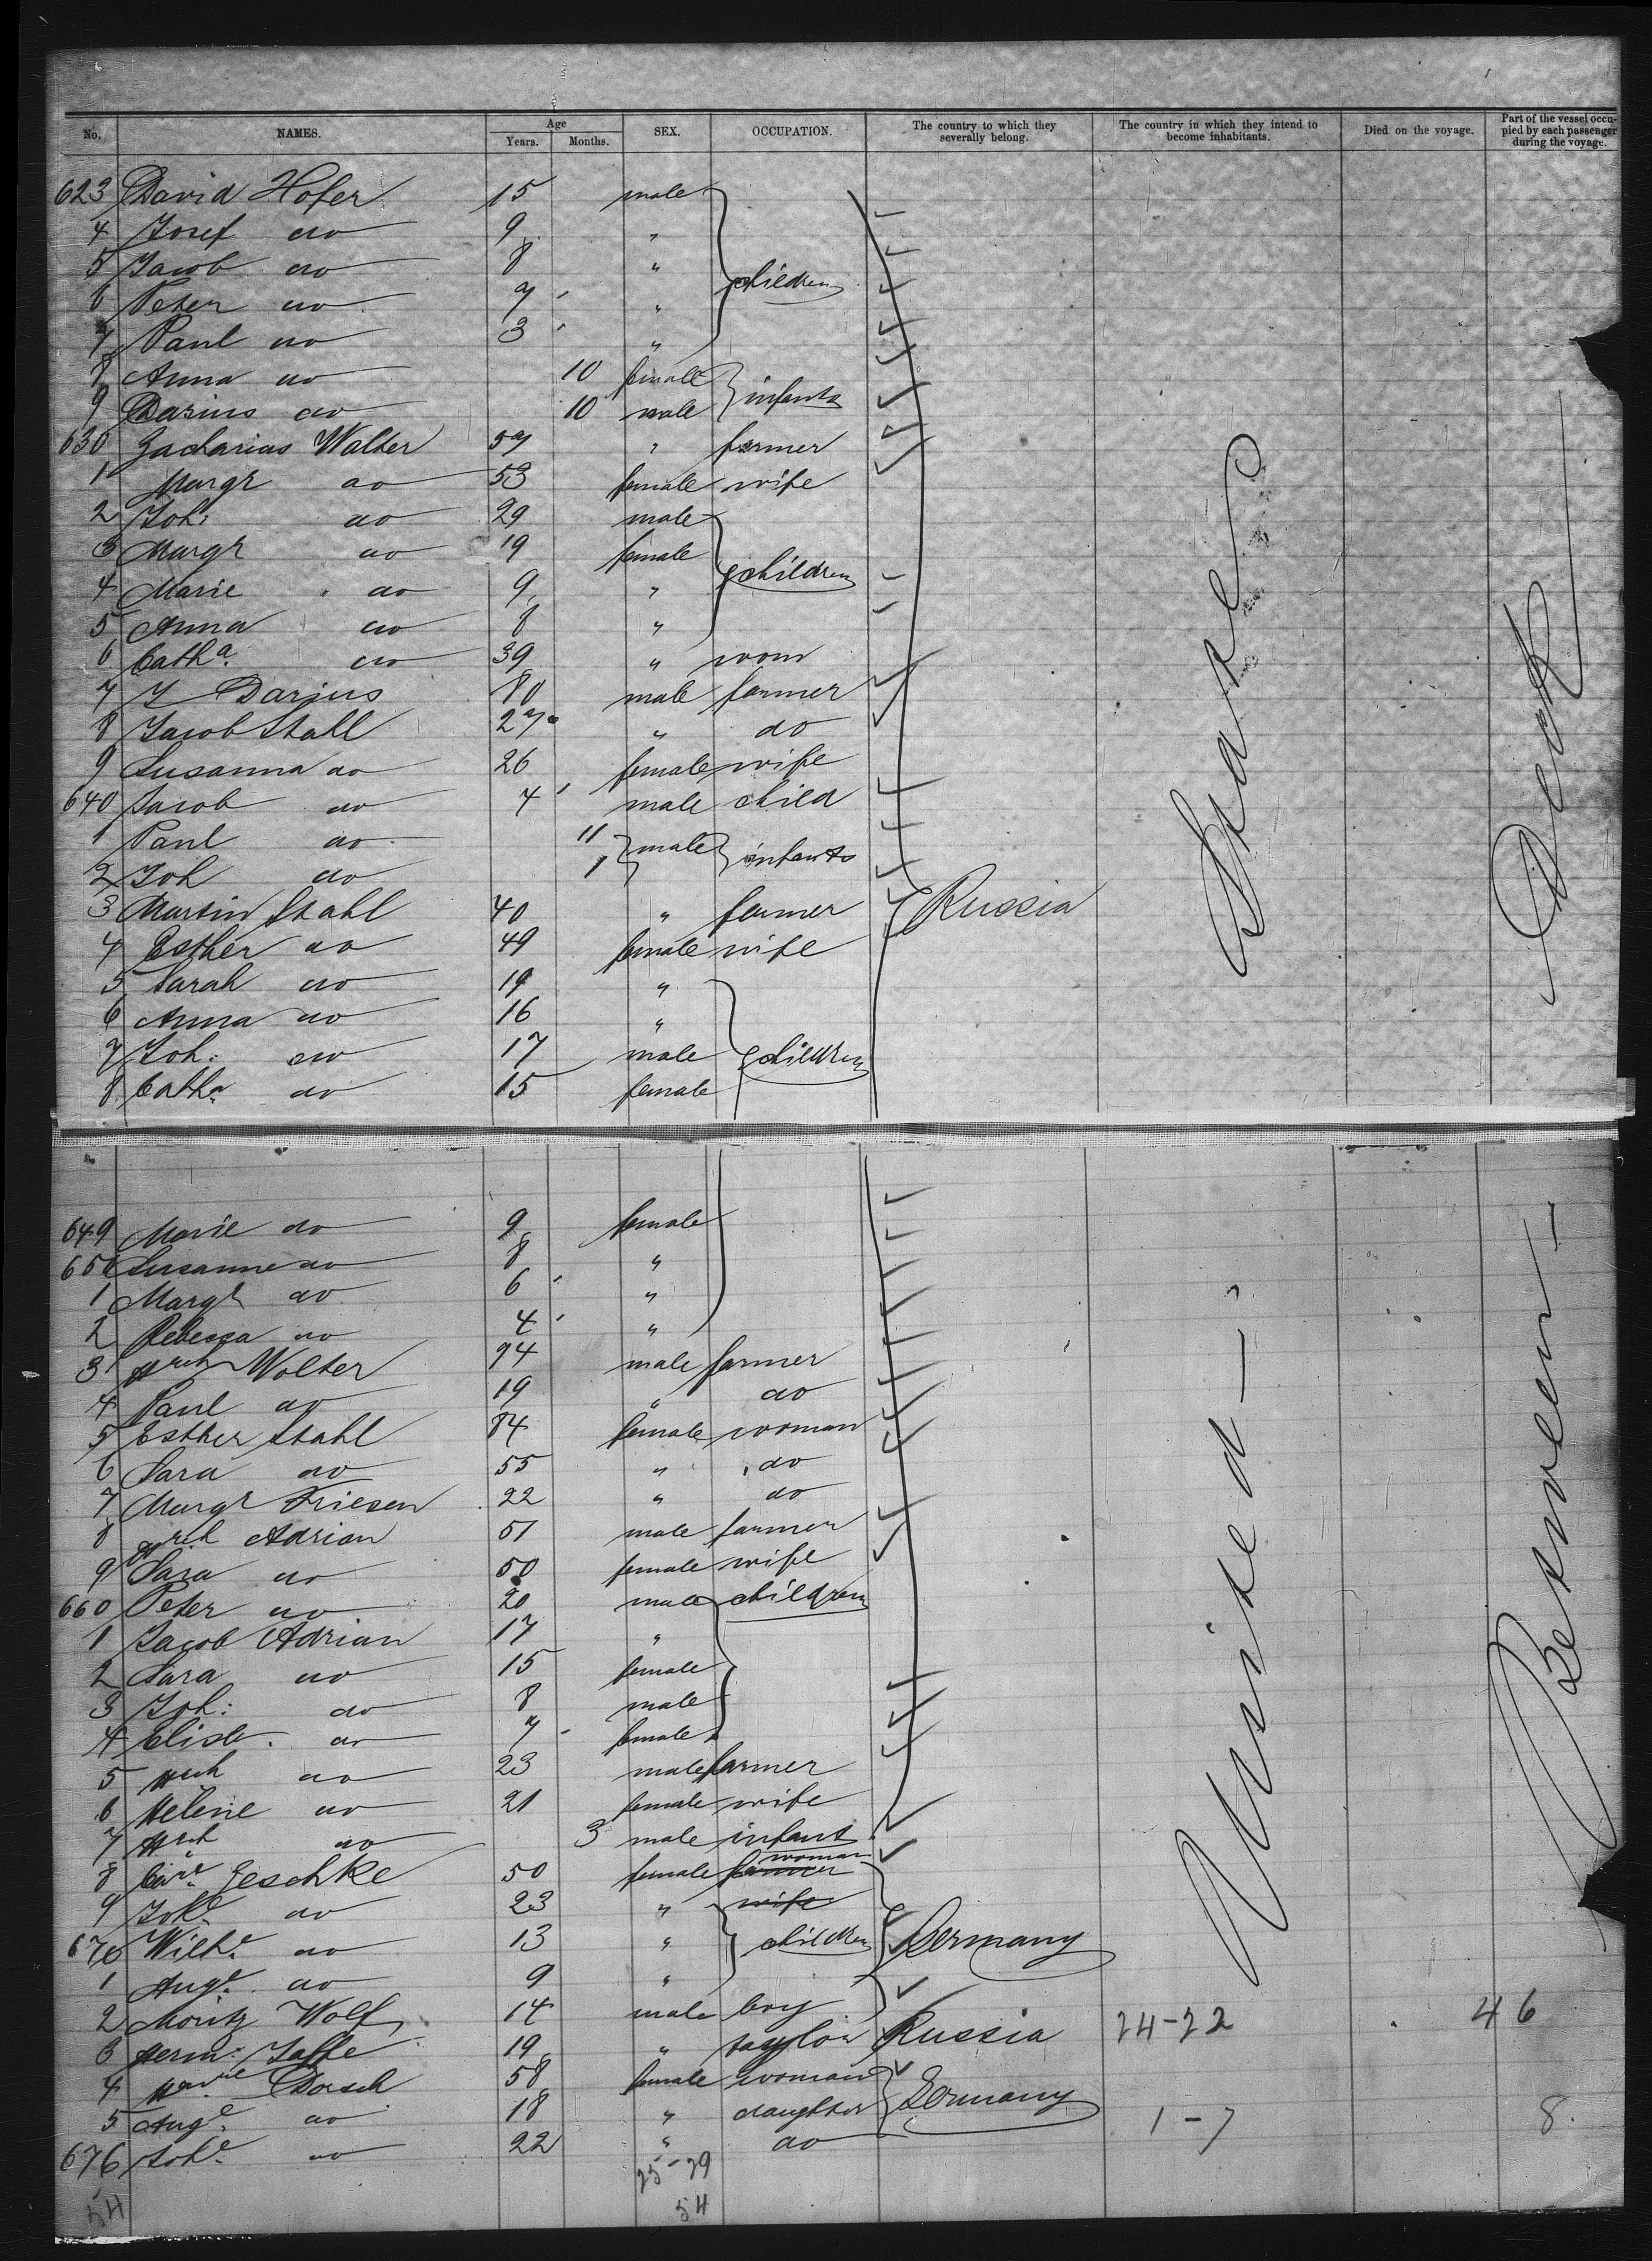 No. NAMES. Age Years. Months. SEX. OCCUPATION. The country to which they severally belong. The country in which they intend to become inhabitants. Died on the voyage. Part of the vessel occupied by each passenger during the voyage.
623 David Hofer 15 male
4 Josef do 9 "
5 Jacob do 8 " children
6 Peter do 7 "
7 Paul do 3 "
8 Anna do 10 female infants
9 Darius do 10 male
630 Zacharias Walter 57 " farmer
1 Margr do 53 female wife
2 Joh: do 29 male
3 Margr do 19 female children
4 Marie do 9 "
5 Anna do 8 "
6 Catha. do 39 " wom
7 J Darius 80 male farmer
8 Jacob Stall 27 " do
9 Susanna do 26 female wife
640 Jacob do 4 male child
1 Paul do 11 male infants
2 Joh do 1
3 Martin Stahl 40 " farmer Russia
4 Esther do 49 female wife
5 Sarah do 19 "
6 Anna do 16 "
7 Joh: do 17 male children
8 Catha do 15 female
649 Marie do 9 female
650 Susanne do 8 "
1 Margr do 6 "
2 Rebecca do 4 "
3 Hrch Wolter 74 male farmer
4 Paul do 19 " do
5 Esther Stahl 84 female woman
6 Sara do 55 " do
7 Margr Friesen 22 " do
8 Hrch Adrian 51 male farmer
9 Sara do 50 female wife
660 Peter do 20 male children
1 Jacob Adrian 17 "
2 Sara do 15 female
3 Joh: do 8 male
4 Elisb. do 7 female
5 Hrch do 23 male farmer
6 Helene do 21 female wife
7 Hrch do 3 male infant
8 Care. Geschke 50 female farmer woman
9 Johe. do 23 " wife
670 Wilhe. do 13 " children Germany
1 Auge. do 9 "
2 Moritz Wolf 14 male boy
3 Herm: Jaffe 19 " taylor Russia 24-22 46
4 Dorsch 58 female woman
5 Auge. do 18 " daughter Germany 1-7 8.
676 Johe. do 22 " do
25-29
54 54
United
States
Between
Deck